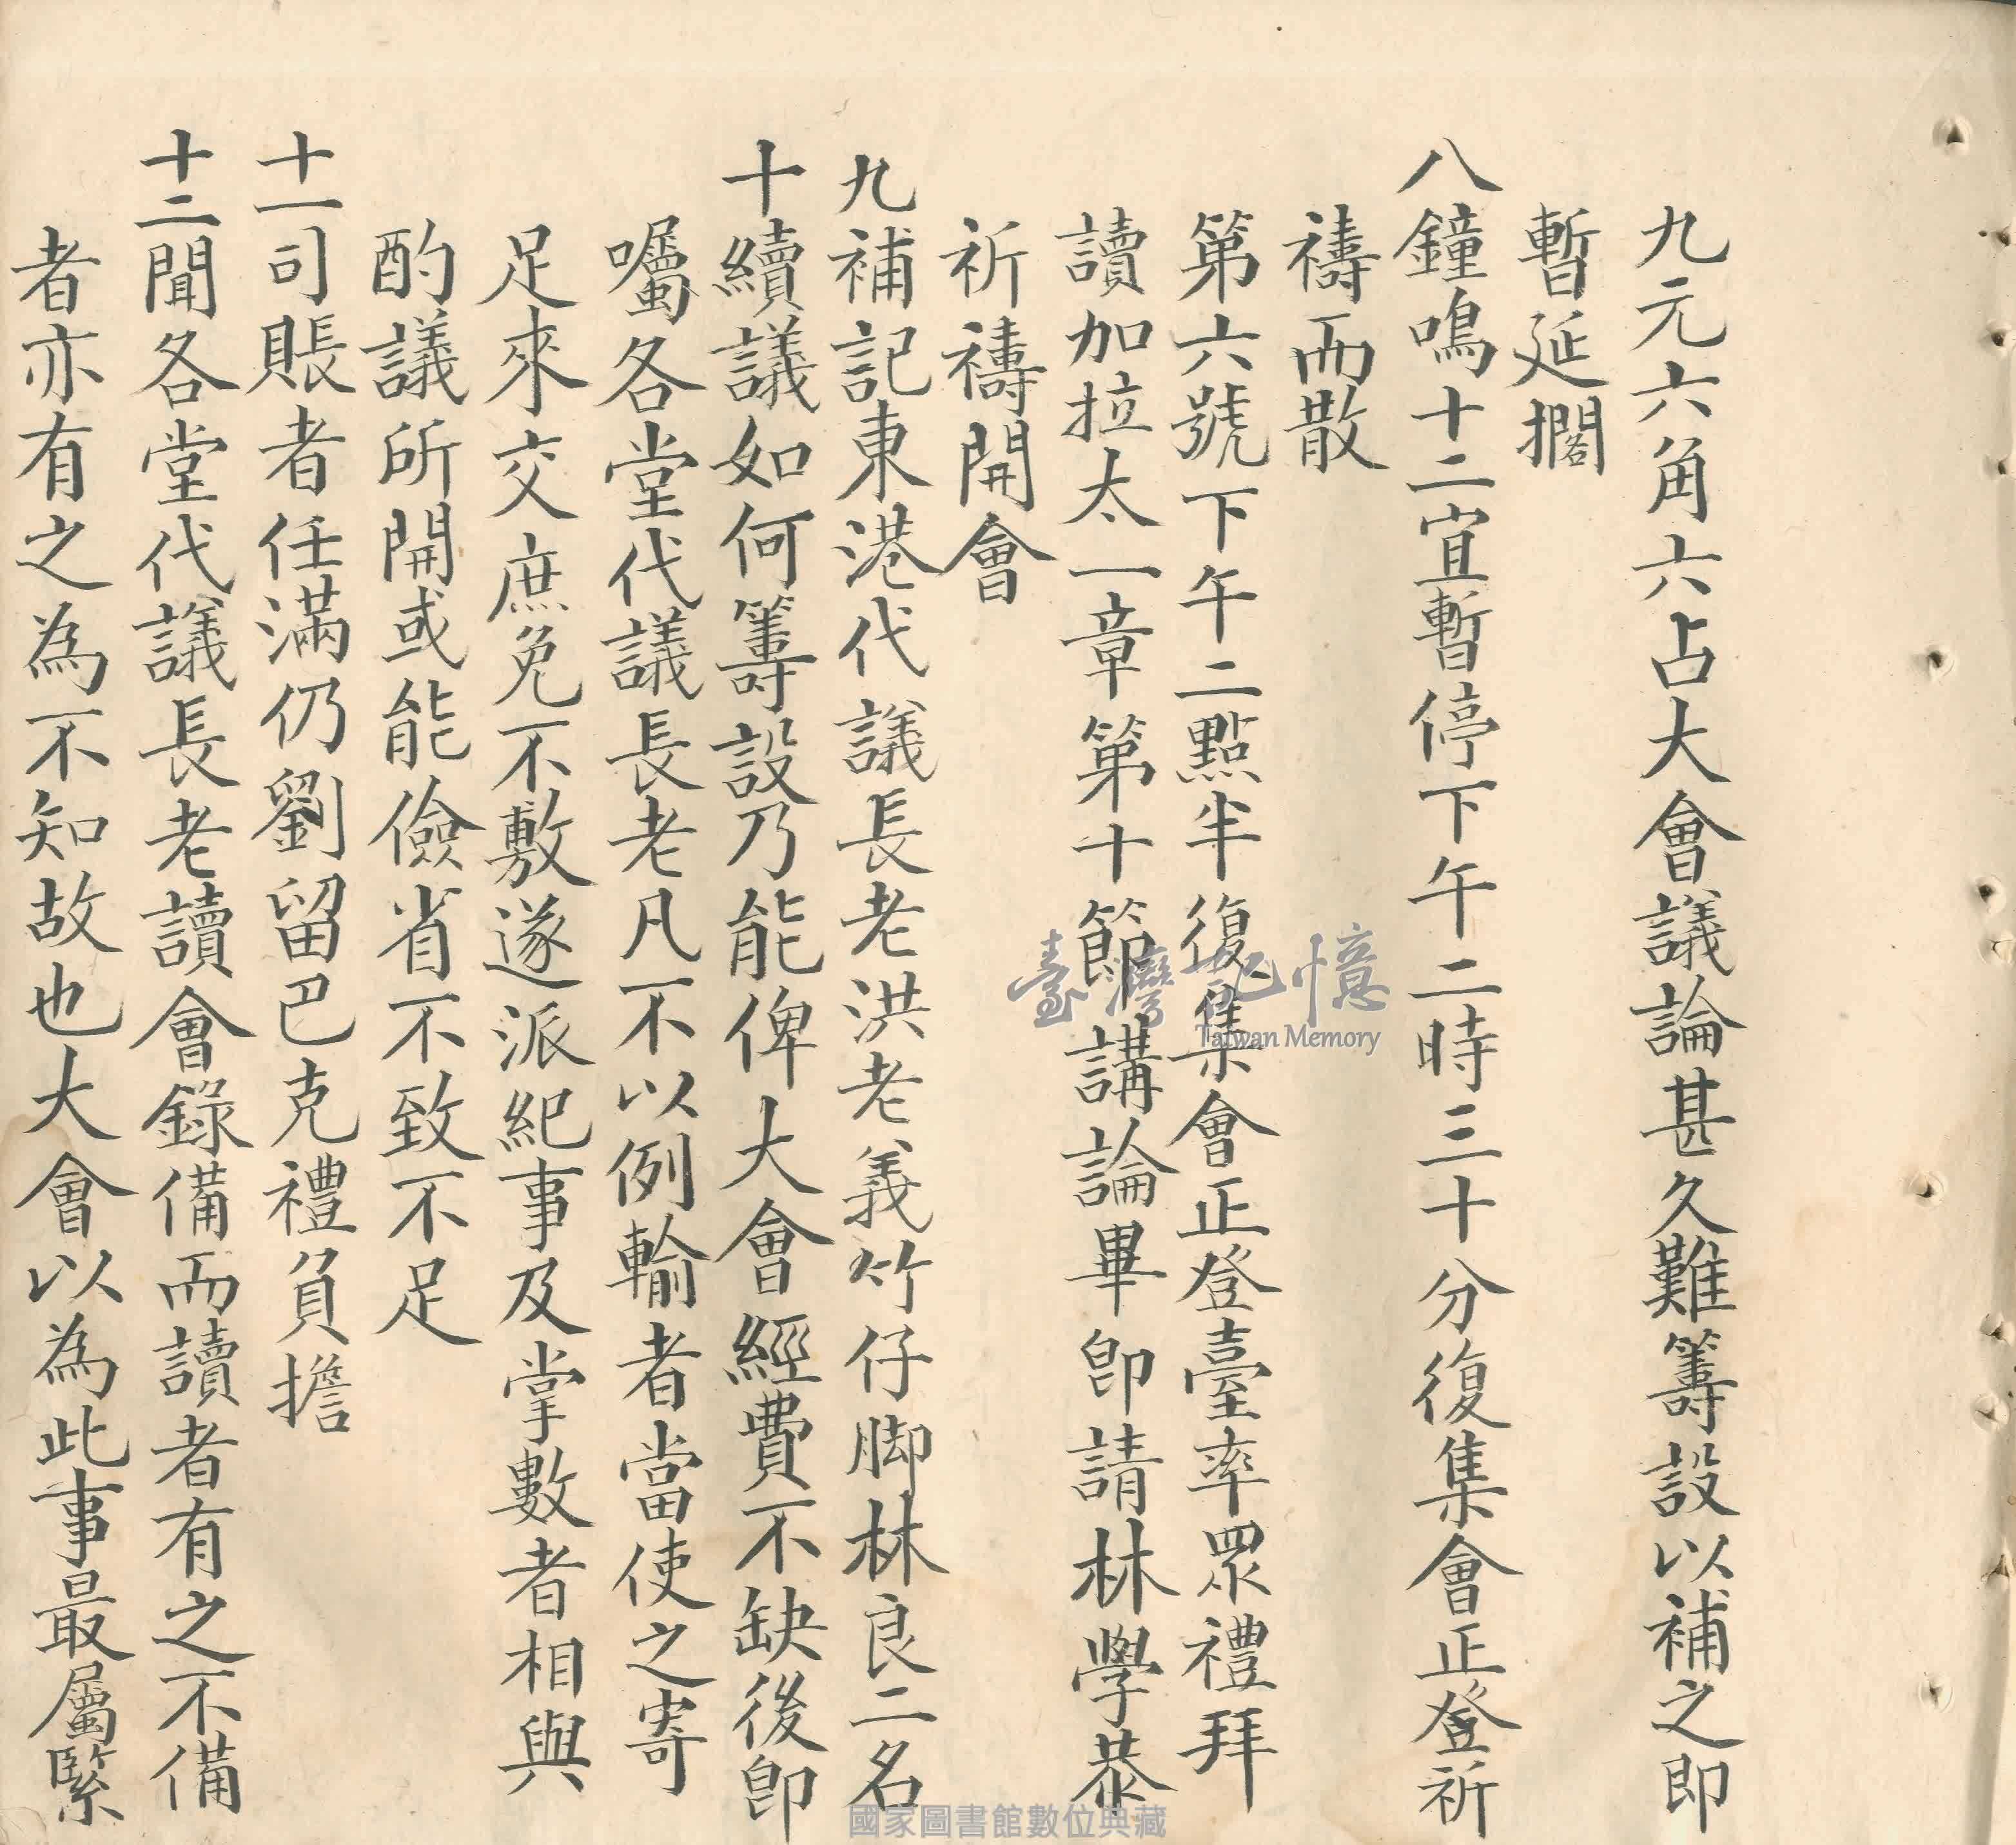 九元六角六占大會議論甚久難籌設以補之即
暫延擱
八鐘鳴十二宜暫停下午二時三十分復集會正登祈
禱而散
第六號下午二點半復集會正登臺率眾禮拜
讀加拉太一章第十節講論畢卽請林學恭
祈禱開會
九補記東港代議長老洪老義竹仔脚林良二名
十續議如何籌設乃能俾大會經費不缺後卽
囑各堂代議長老凡不以例輸者當使之寄
足來交庶免不敷遂派紀事及掌數者相與
酌議所開或能儉省不致不足
十一司賬者任滿仍劉留巴克禮負擔
十二聞各堂代議長老讀會錄備而讀者有之不備
者亦有之為不知故也大會以為此事最屬緊
臺灣記憶
Taiwan Memory
國家圖書館數位典藏